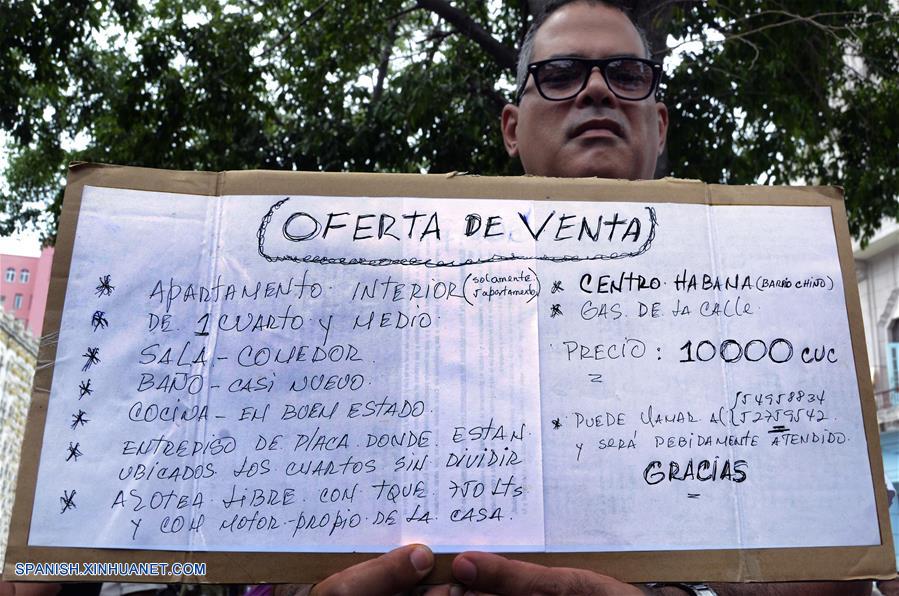 OFERTA DE VENTA
* APARTAMENTO INTERIOR (solamente 5 apartamento)
* DE 1 CUARTO Y MEDIO.
* SALA - COMEDOR.
* BAÑO - CASI NUEVO.
* COCINA - EN BUEN ESTADO.
* ENTREPISO DE PLACA DONDE ESTAN
UBICADOS LOS CUARTOS SIN DIVIDIR
* AZOTEA LIBRE CON TQUE 750 Lts
Y CON MOTOR PROPIO DE LA CASA.
* CENTRO HABANA (BARRIO CHINO)
* GAS DE LA CALLE
PRECIO: 10000 CUC
54958834
* PUEDE LLAMAR AL 52759542
Y SERÁ DEBIDAMENTE ATENDIDO.
GRACIAS
SPANISH.XINHUANET.COM